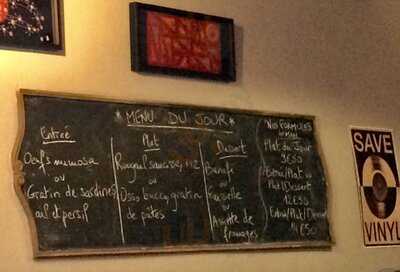 * MENU DU JOUR *
Entrée
Oeufs mimosa
ou
Gratin de sardines
au persil
Plat
Rougail saucisse, riz
ou
Osso bucco, gratin
de pâtes
Dessert
ou
ou
Assiette de
fromages
Nos FORMULES
Plat du Jour
9€50
Plat/Dessert
12€50
Entrée/Plat/Dessert
14€50
SAVE
VINYL